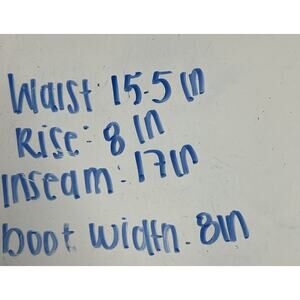 Waist: 15.5 in
Rise: 8 in
Inseam: 17 in
boot width: 8in